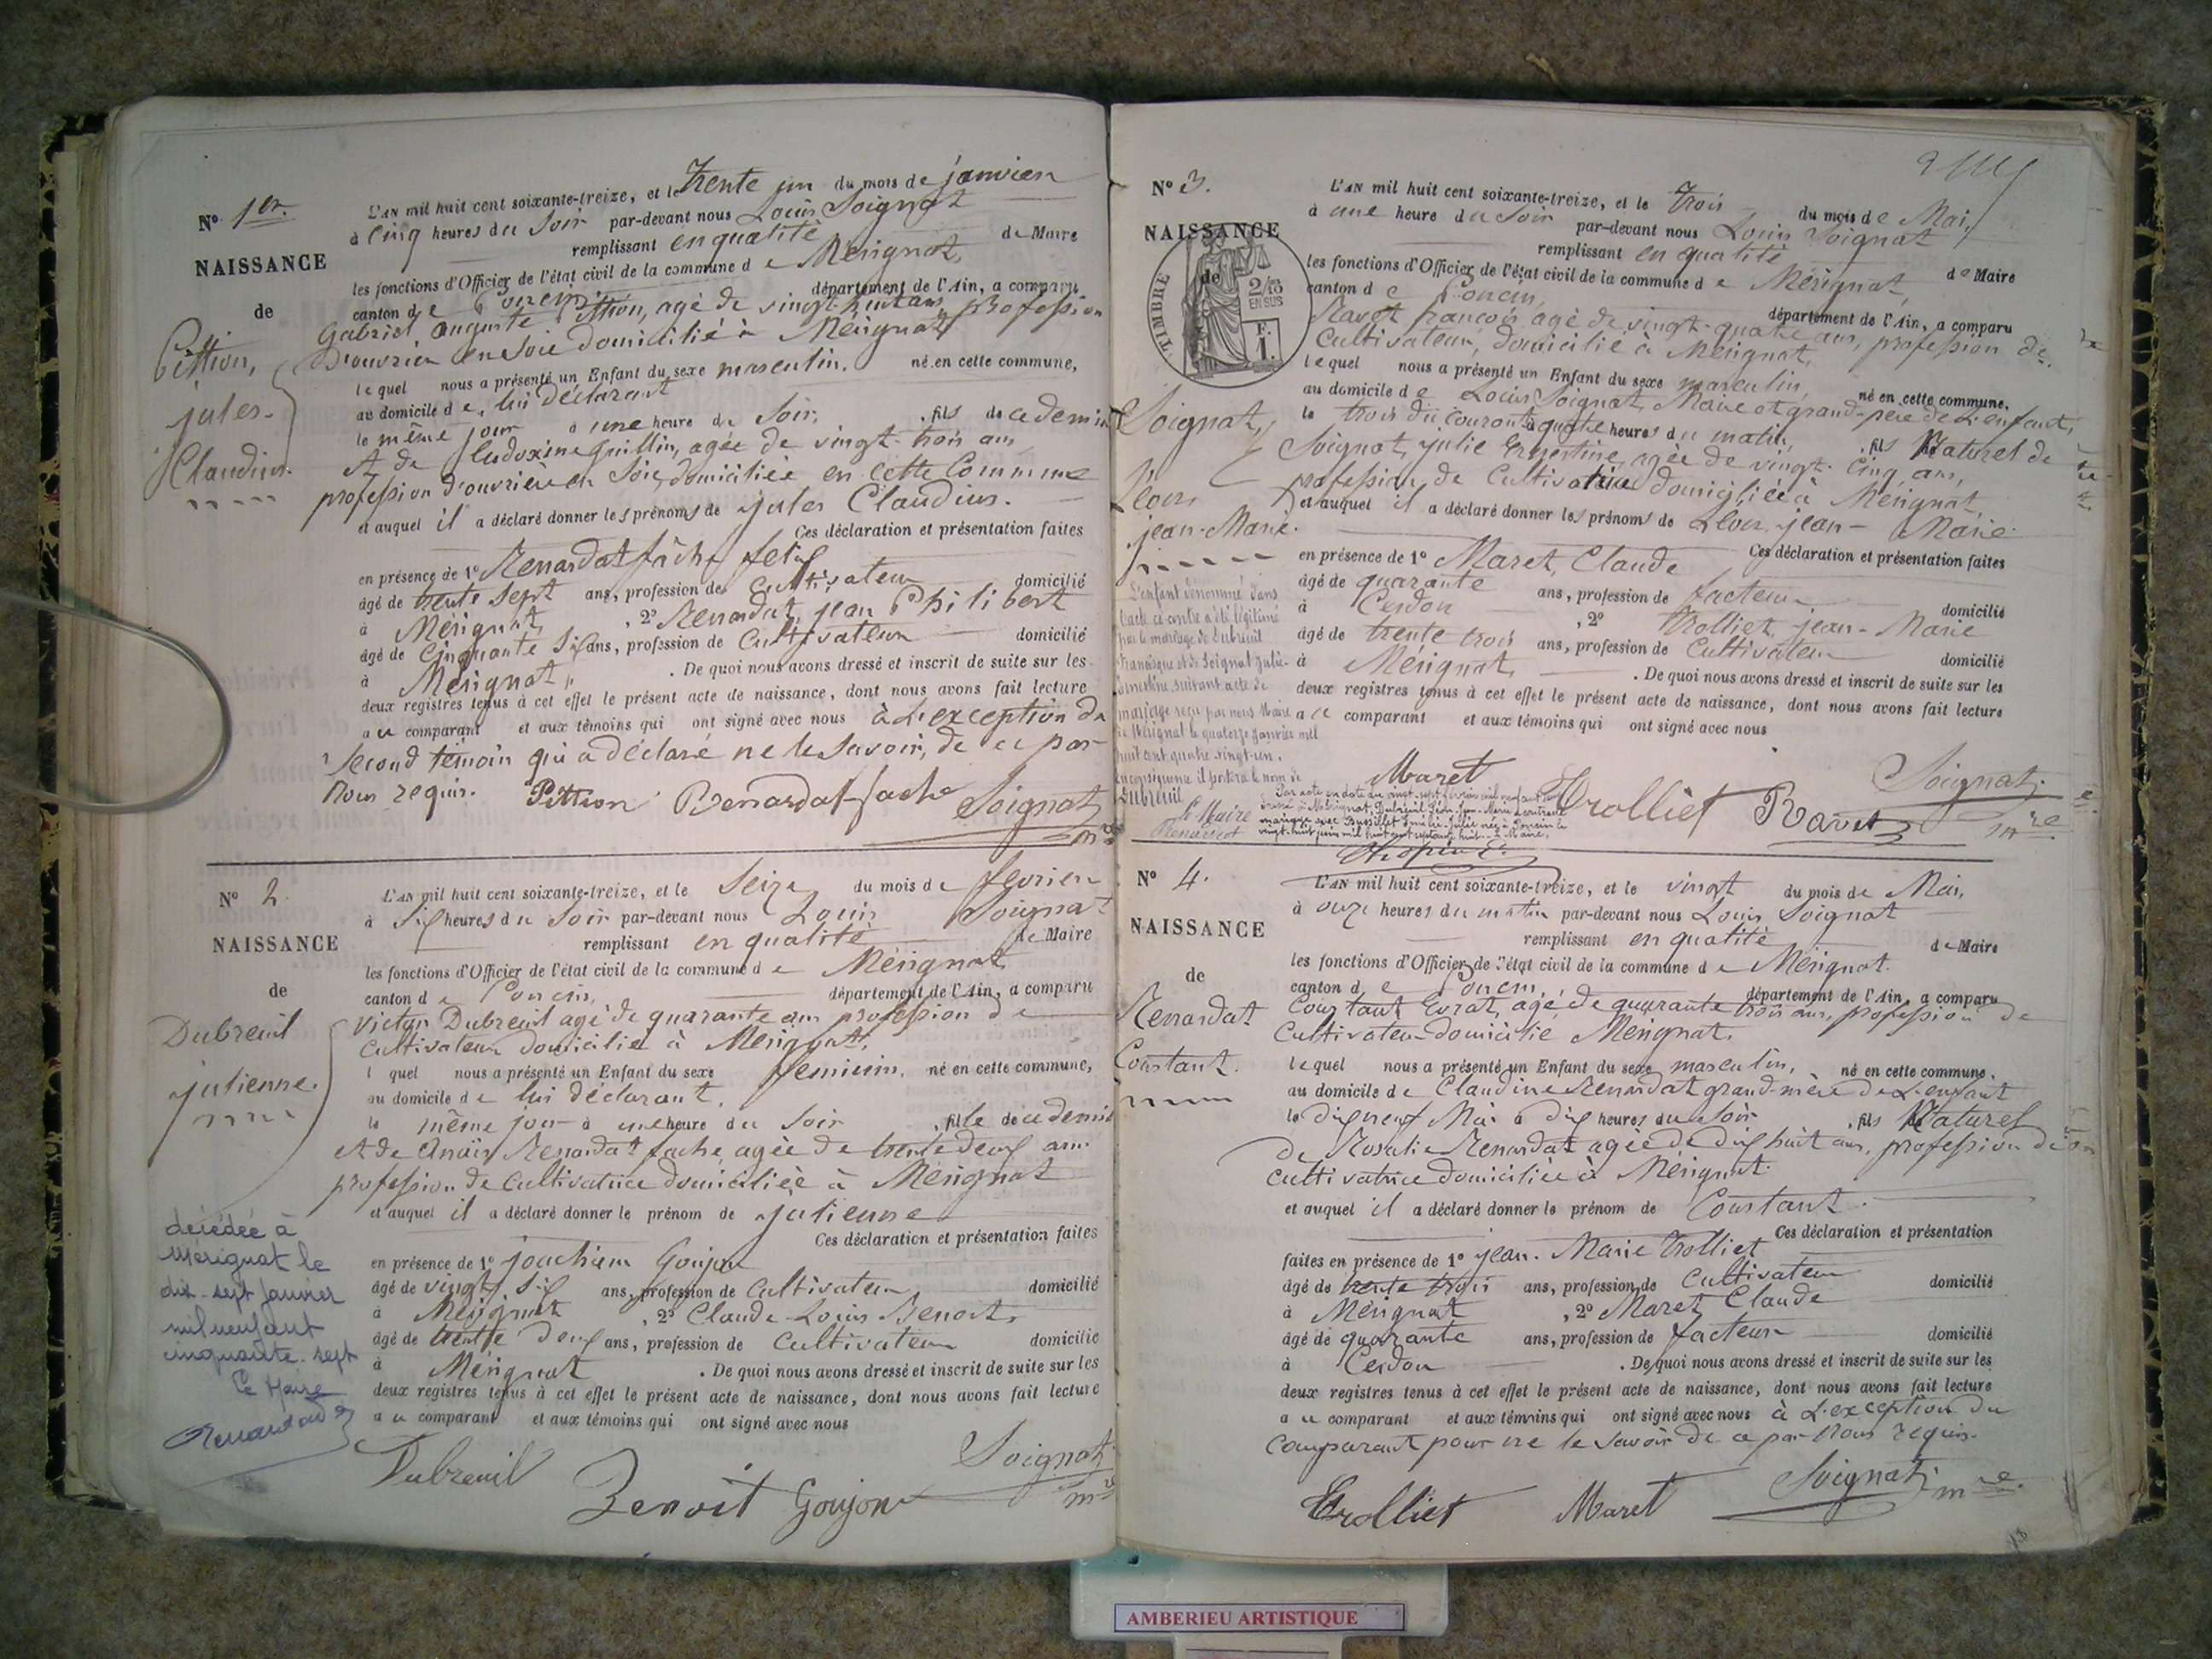 N° 1er.
NAISSANCE
de
Pittion,
jules-
Claudius.
L'AN mil huit cent soixante-treize, et le trente un du mois de janvier
à cinq heures du soir par-devant nous Louis Soignat
remplissant en qualité de Maire
les fonctions d'Officier de l'état civil de la commune de Mérignat,
canton de Poncin, département de l'Ain, a comparu
Gabriel auguste Pittion, agé de vingt-huit ans, profession
D'ouvrier en soie domicilié à Mérignat,
lequel nous a présenté un Enfant du sexe masculin, né en cette commune,
au domicile de lui déclarant
le même jour à une heure du soir, fils de ce dernier
et de Eudoxine guillin, agée de vingt-trois ans
profession d'ouvrière en soie, domiciliée en cette Commune
et auquel il a déclaré donner les prénoms de jules Claudius.
Ces déclaration et présentation faites
en présence de 1° Renardat fâche félix
âgé de trente sept ans, profession de Cultivateur domicilié
à Mérignat, 2° Renardat, jean Philibert
âgé de Cinquante six ans, profession de Cultivateur domicilié
à Mérignat, . De quoi nous avons dressé et inscrit de suite sur les
deux registres tenus à cet effet le présent acte de naissance, dont nous avons fait lecture
au comparant et aux témoins qui ont signé avec nous à l'exception du
second témoin qui a déclaré ne le savoir, de ce par
nous requis. Pittion Renardat-fache Soignat
mre
N° 2
NAISSANCE
de
Dubreuil
julienne.
L'AN mil huit cent soixante-treize, et le Seize du mois de février
à six heures du soir par-devant nous Louis Soignat
remplissant en qualité de Maire
les fonctions d'Officier de l'état civil de la commune de Mérignat
canton de Poncin, département de l'Ain, a comparu
Victor Dubreuil agé de quarante ans profession de
Cultivateur domicilié à Mérignat,
lequel nous a présenté un Enfant du sexe féminin, né en cette commune,
au domicile de lui déclarant,
le même jour à une heure du soir, fille de ce dernier
et de Anaïs Renardat fache, agée de trente deux ans
profession de Cultivatrice domiciliée à Mérignat
et auquel il a déclaré donner le prénom de julienne
Ces déclaration et présentation faites
en présence de 1° joachim Goujon
âgé de vingt six ans, profession de Cultivateur domicilié
à Mérignat, 2° Claude Louis Benoit,
âgé de trente deux ans, profession de Cultivateur domicilié
à Mérignat . De quoi nous avons dressé et inscrit de suite sur les
deux registres tenus à cet effet le présent acte de naissance, dont nous avons fait lecture
au comparant et aux témoins qui ont signé avec nous
Dubreuil Benoit Goujon Soignat
mre
décédée à
Mérignat le
dix-sept Janvier
mil neuf cent
cinquante-sept
Le Maire
N° 3.
NAISSANCE
de
TIMBRE
2/10
EN SUS
F.
1.
Soignat,
Léon,
jean-Marie.
L'AN mil huit cent soixante-treize, et le trois du mois de Mai,
à une heure du soir par-devant nous Louis Soignat
remplissant en qualité de Maire
les fonctions d'Officier de l'état civil de la commune de Mérignat,
canton de Poncin, département de l'Ain, a comparu
Ravet françois agé de vingt-quatre ans, profession de
Cultivateur, domicilié à Mérignat,
lequel nous a présenté un Enfant du sexe masculin, né en cette commune,
au domicile de Louis Soignat, Maire et grand-père de l'enfant,
le trois du courant à quatre heures du matin, fils Naturel de
Soignat, julie Ernestine agée de vingt-cinq ans,
profession de Cultivatrice domiciliée à Mérignat,
et auquel il a déclaré donner les prénoms de Léon, jean-Marie
Ces déclaration et présentation faites
en présence de 1° Maret, Claude
âgé de quarante ans, profession de facteur domicilié
à Cerdon, 2° trolliet, jean-Marie
âgé de trente trois ans, profession de Cultivateur domicilié
à Mérignat, . De quoi nous avons dressé et inscrit de suite sur les
deux registres tenus à cet effet le présent acte de naissance, dont nous avons fait lecture
au comparant et aux témoins qui ont signé avec nous
Maret Trolliet Ravet Soignat
mre
L'enfant dénommé dans
l'acte ci-contre a été légitimé
par le mariage de Dubreuil
Francisque et de Soignat Julie-
Ernestine, suivant acte de
mariage reçu par nous Maire
de Mérignat le quatorze janvier mil
huit cent quatre-vingt-un.
En conséquence il portera le nom de
Dubreuil
Le Maire
Renardat
N° 4.
NAISSANCE
de
Renardat
Constant.
L'AN mil huit cent soixante-treize, et le vingt du mois de Mai,
à onze heures du matin par-devant nous Louis Soignat
remplissant en qualité de Maire
les fonctions d'Officier de l'état civil de la commune de Mérignat.
canton de Poncin, département de l'Ain, a comparu
Constant Evrat, agé de quarante trois ans, profession de
Cultivateur domicilié Mérignat.
lequel nous a présenté un Enfant du sexe masculin, né en cette commune.
au domicile de Claudine Renardat grand-mère de l'enfant
le dix neuf Mai à dix heures du soir, fils Naturel
de Rosalie Renardat agée de dix huit ans, profession de
Cultivatrice domiciliée à Mérignat.
et auquel il a déclaré donner le prénom de Constant.
Ces déclaration et présentation
faites en présence de 1° jean-Marie trolliet
âgé de trente trois ans, profession de Cultivateur domicilié
à Mérignat, 2° Maret Claude
âgé de quarante ans, profession de facteur domicilié
à Cerdon . De quoi nous avons dressé et inscrit de suite sur les
deux registres tenus à cet effet le présent acte de naissance, dont nous avons fait lecture
au comparant et aux témoins qui ont signé avec nous à l'exception du
Comparant pour ne le savoir de ce par nous requis.
Trolliet Maret Soignat mre
AMBERIEU ARTISTIQUE